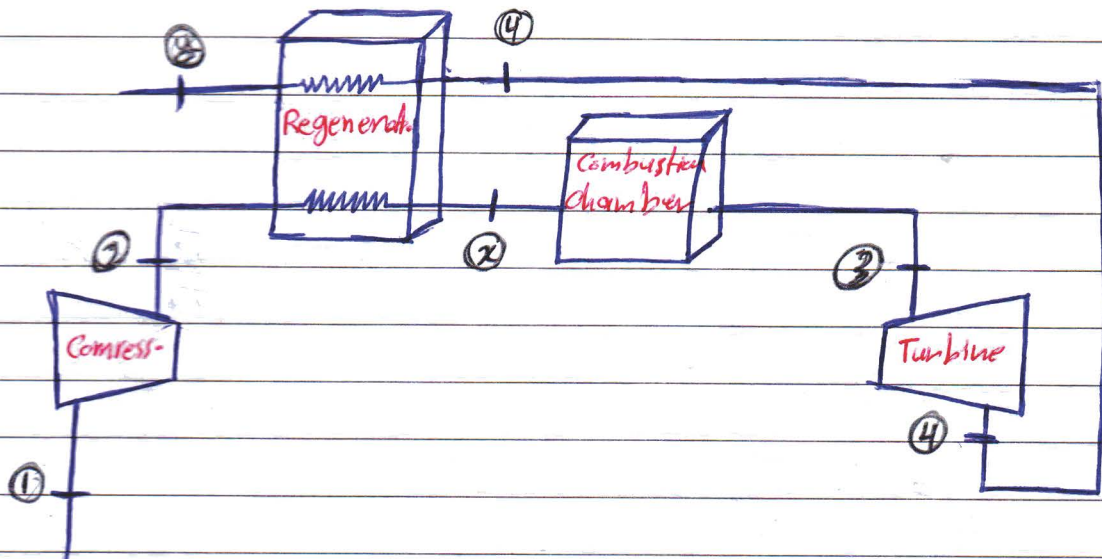 y
4
Regenerat.
Combustion
chamber
2
x
3
Comress-
Turbine
4
1